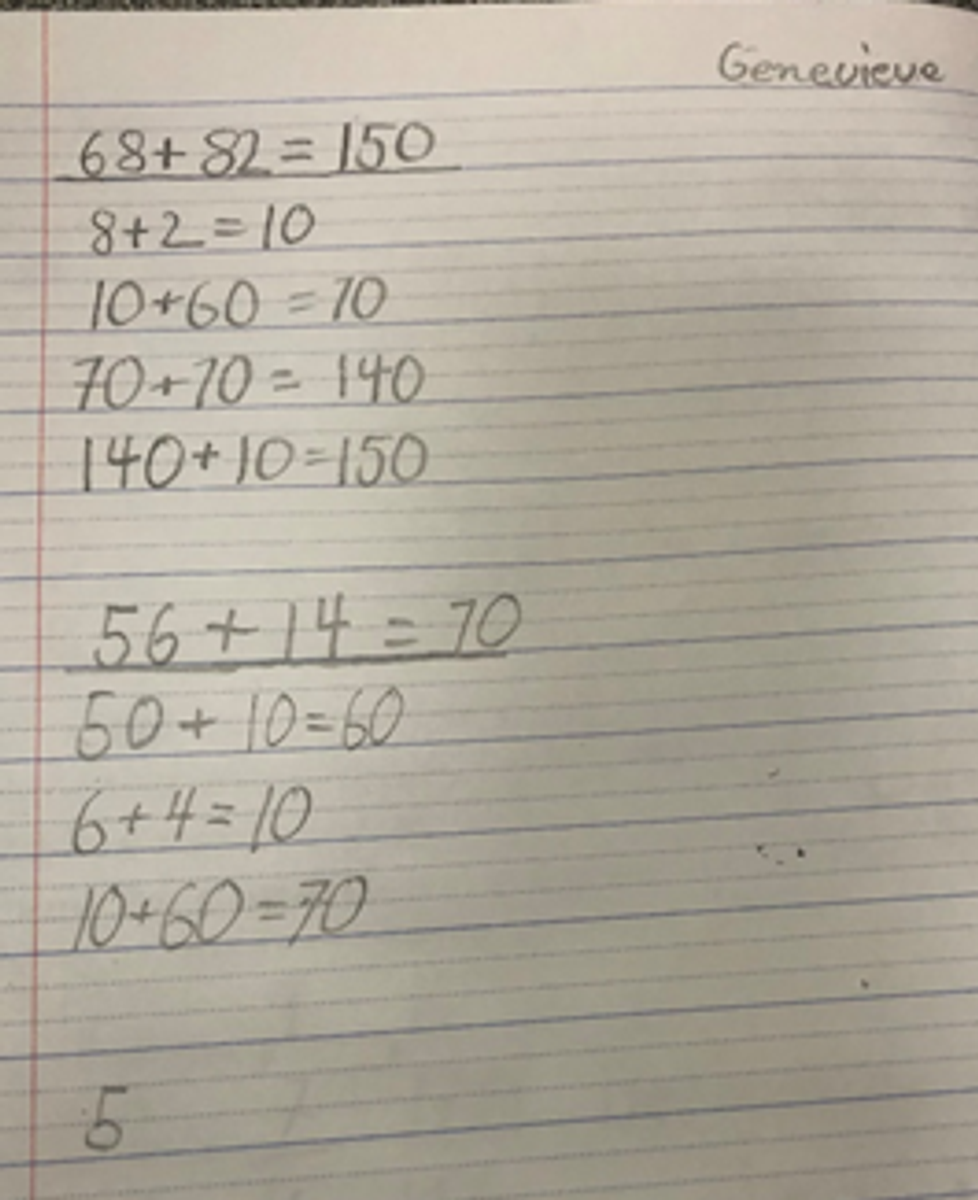 Genevieve
68+82=150
8+2=10
10+60=70
70+70=140
140+10=150
56+14=70
50+10=60
6+4=10
10+60=70
5